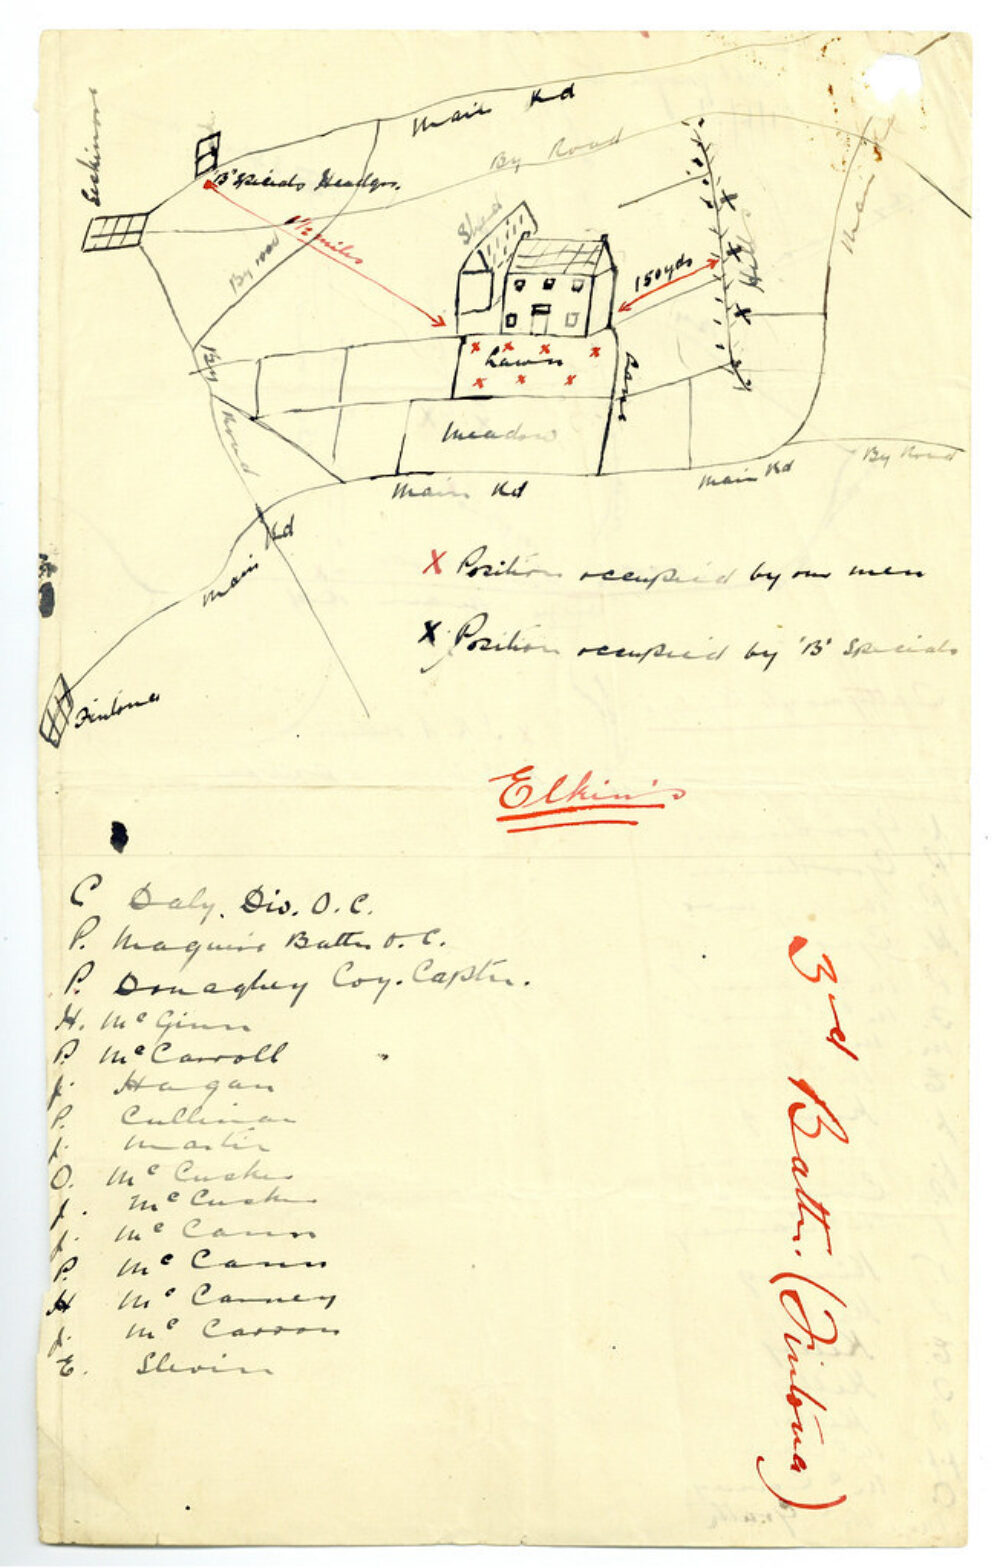 Main Rd
By Road
Eskinore
'B' Specials Headqrs.
1½ miles
By road
Shed
150 yds
Hill
Main
Lawn
Lane
Meadow
By
Road
Main Rd
Main Rd
By Road
Main Rd
Fintona
X Position occupied by our men
X Position occupied by 'B' Specials
Elkin's
C Daly. Div. O.C.
P. Maguire Battn O.C.
P. Donaghey Coy. Captn.
H. McGinn
P. McCarroll
J. Hagan
P. Cullinan
J. Martin
O. McCusker
J. McCusker
J. McCann
P. McCann
H McCanney
J. McCarron
E. Slevin
3rd Battn. (Fintona)